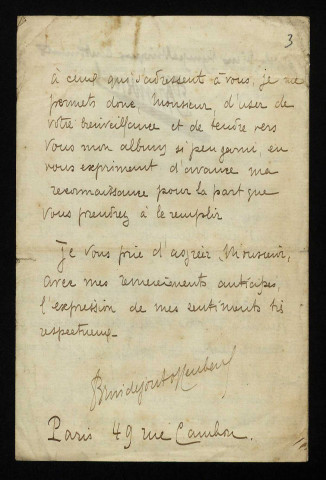 3
à ceux qui s'adressent à vous, je me
permets donc, Monsieur, d'user de
votre bienveillance et de tendre vers
vous mon album, si peu garni, en
vous exprimant d'avance ma
reconnaissance pour la part que
vous prendrez à le remplir
Je vous prie d'agréer, Monsieur,
avec mes remerciements anticipés,
l'expression de mes sentiments très
respectueux.
Paris 49 rue Cambon.